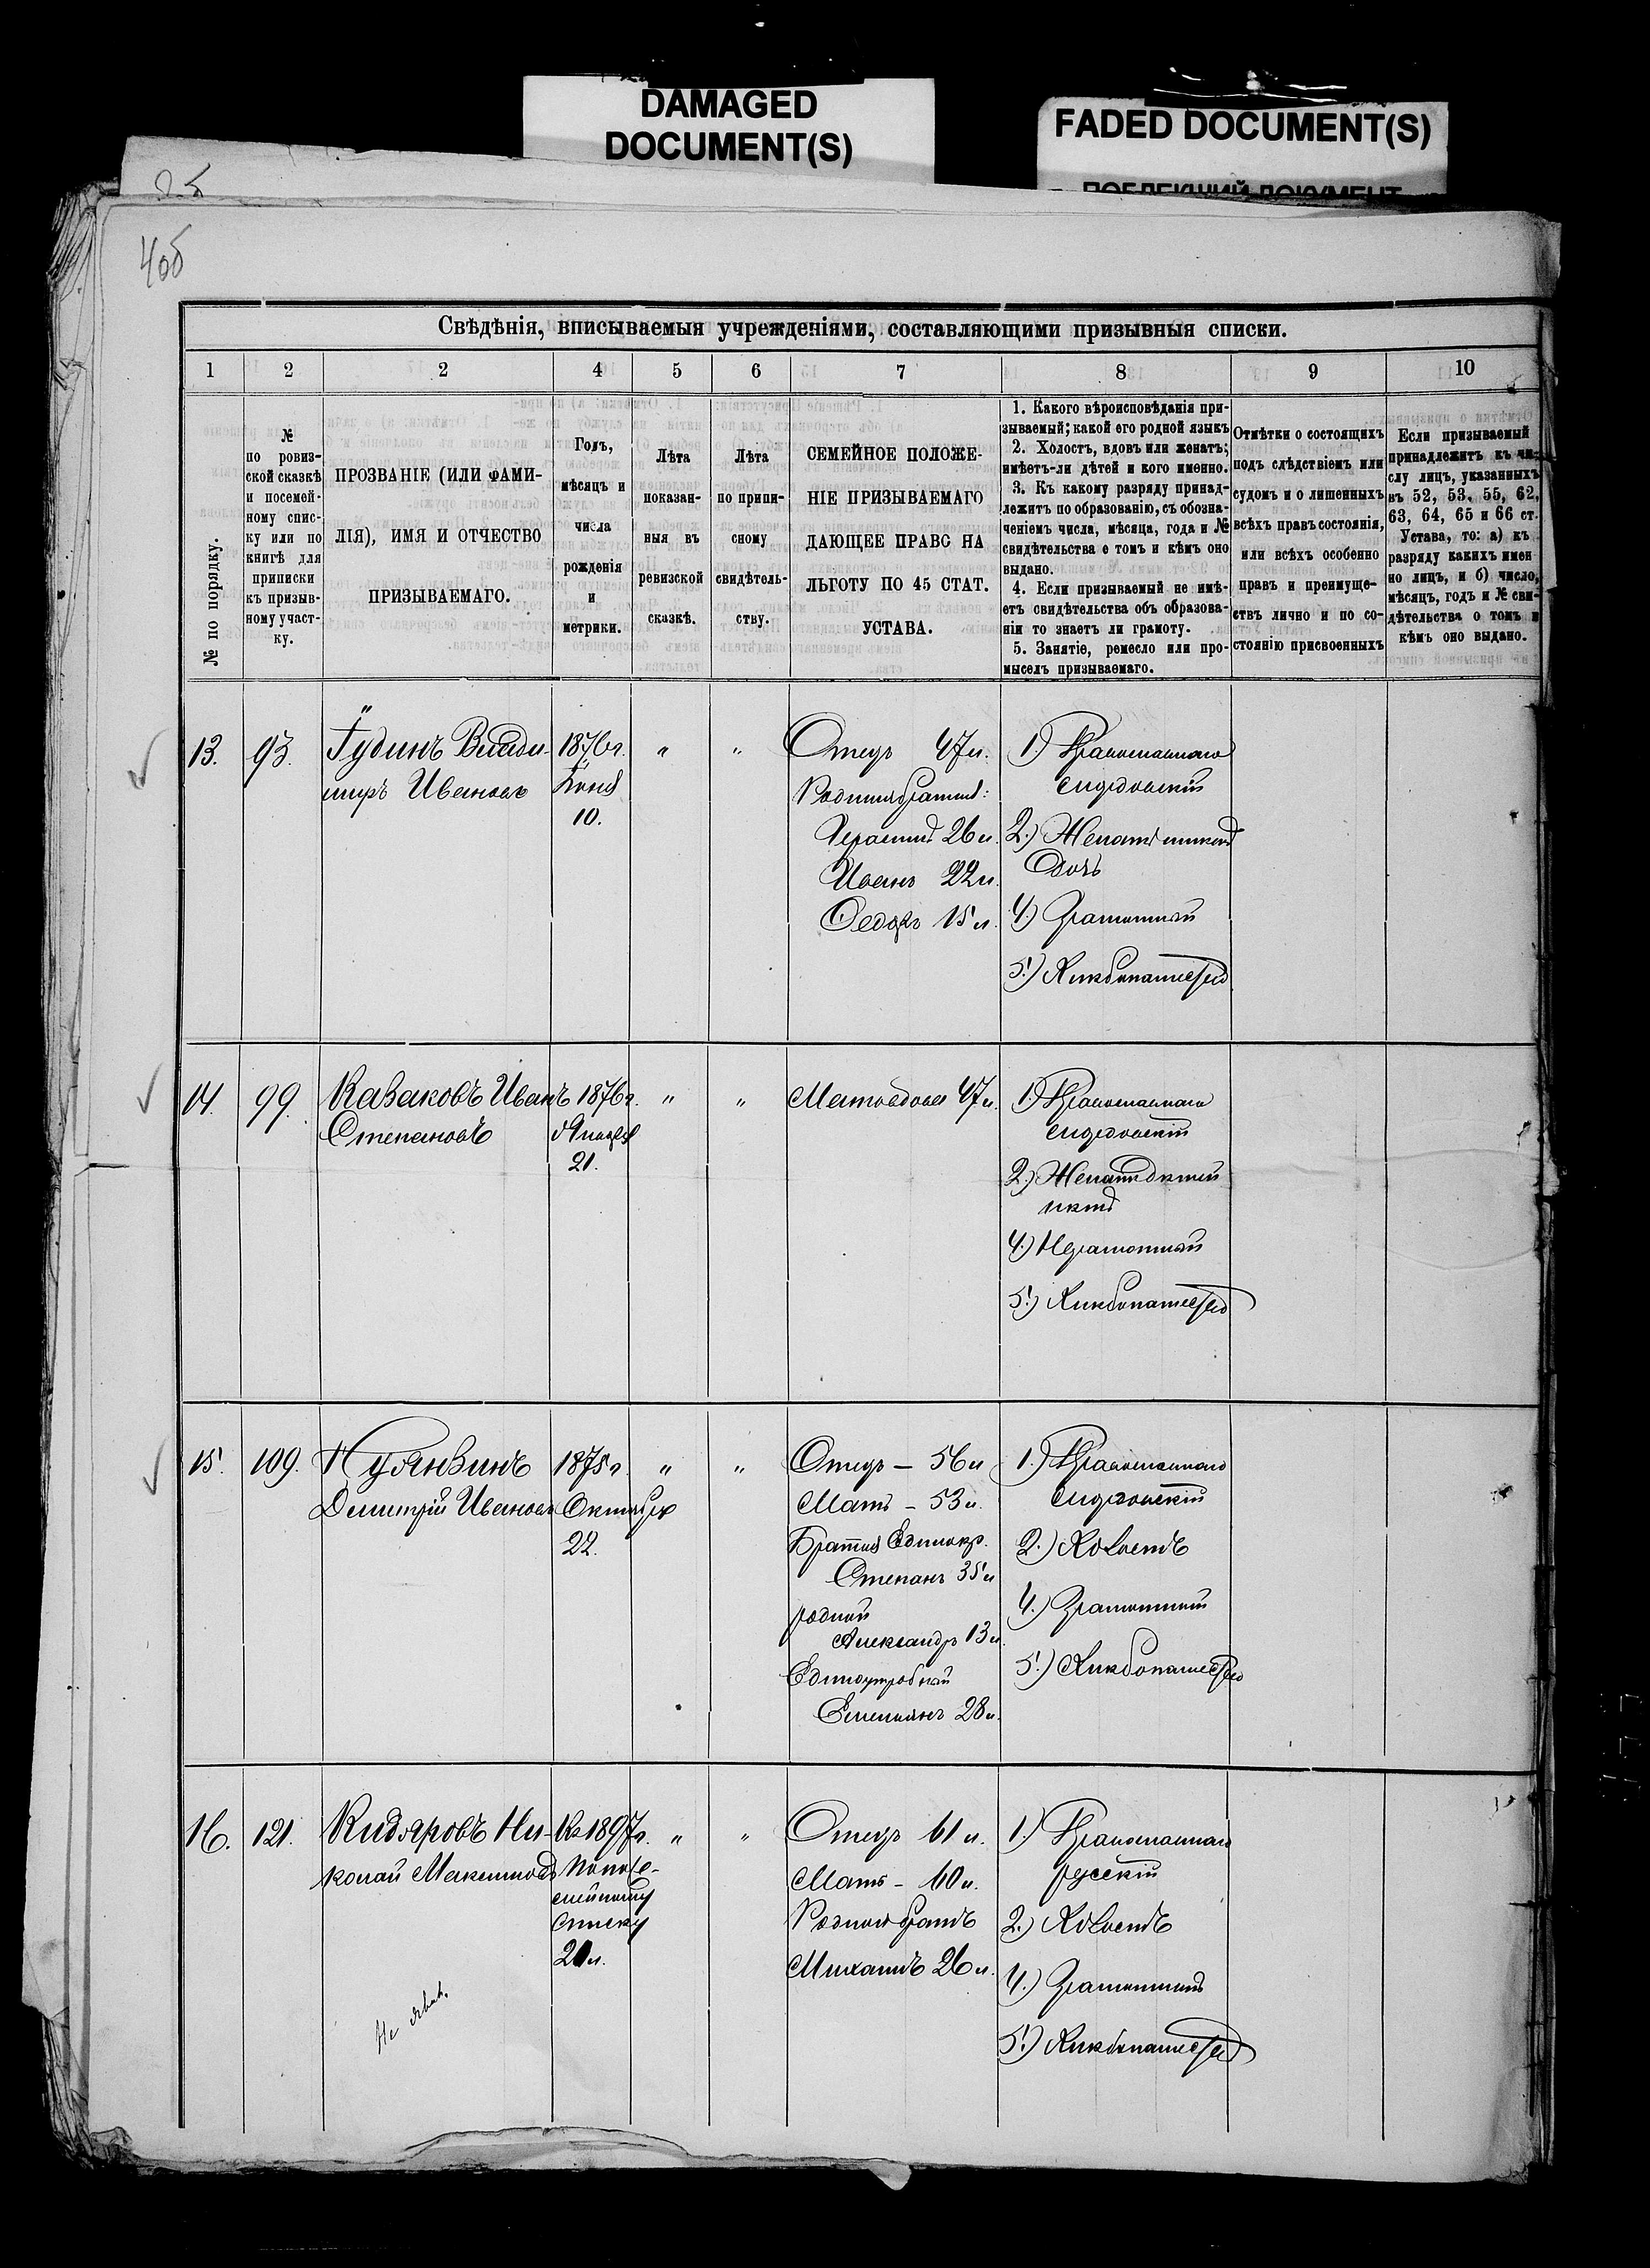 DAMAGED
DOCUMENT(S)
FADED DOCUMENT(S)
406
Свѣдѣнія, вписываемыя учрежденіями, составляющими призывныя списки.
1 2 2 4 5 6 7 8 9 10
№ по порядку.
№
по ровиз-
ской сказкѣ
и посемей-
ному спис-
ку или по
книгѣ для
приписки
къ призыв-
ному участ-
ку.
ПРОЗВАНІЕ (ИЛИ ФАМИ-
ЛІЯ), ИМЯ И ОТЧЕСТВО
ПРИЗЫВАЕМАГО.
Годъ,
мѣсяцъ и
числа
рожденія
и
метрики.
Лѣта
показан-
ныя въ
ревизской
сказкѣ.
Лѣта
по припи-
сному
свидѣтель-
ству.
СЕМЕЙНОЕ ПОЛОЖЕ-
НІЕ ПРИЗЫВАЕМАГО
ДАЮЩЕЕ ПРАВО НА
ЛЬГОТУ ПО 45 СТАТ.
УСТАВА.
1. Какого вѣроисповѣданія при-
зываемый; какой его родной языкъ
2. Холостъ, вдовъ или женатъ;
имѣетъ-ли дѣтей и кого именно.
3. Къ какому разряду принад-
лежитъ по образованію, съ обозна-
ченіемъ числа, мѣсяца, года и №
свидѣтельства о томъ и кѣмъ оно
выдано.
4. Если призываемый не имѣ-
етъ свидѣтельства объ образова-
ніи то знаетъ ли грамоту.
5. Занятіе, ремесло или про-
мыселъ призываемаго.
Отмѣтки о состоящихъ
подъ слѣдствіемъ или
судомъ и о лишенныхъ
всѣхъ правъ состоянія,
или всѣхъ особенно
правъ и преимуще-
ствъ лично и по со-
стоянію присвоенныхъ
Если призываемый
принадлежитъ къ чи-
слу лицъ, указанныхъ
въ 52, 53, 55, 62,
63, 64, 65 и 66 ст.
Устава, то: а) къ
разряду какихъ имен-
но лицъ, и б) число,
мѣсяцъ, годъ и № сви-
дѣтельства о томъ и
кѣмъ оно выдано.
13. 93. Гудинъ Влади-
миръ Ивановъ
1876 г.
Іюня
10.
" "
Отецъ 47 л.
Родныя братья:
Герасимъ 26 л.
Иванъ 22 л.
Ѳедоръ 15 л.
1.) Православнаго
2.) Женатъ имѣетъ
дочь
4.) Грамотный
5.) Хлѣбопашество
14. 99. Казаковъ Иванъ
Степановъ
1876 г.
Января
21.
" "
Мать вдова 47 л.
1.) Православнаго
2.) Женатъ дѣтей
нѣтъ
4.) Неграмотный
5.) Хлѣбопашество
15. 109.
Димитрій Ивановъ
1875 г.
Октября
22.
" "
Отецъ – 56 л.
Мать – 53 л.
Братья Единокр.
Степанъ 35 л.
родной
Александръ 13 л.
Единоутробный
Емельянъ 28 л.
1.) Православнаго
2.) Холостъ
4.) Грамотный
5.) Хлѣбопашество
16. 121. Кидяровъ Ни-
колай Максимовъ
Къ 1897 г.
по посе-
мейному
списку
" "
Отецъ 61 л.
Мать – 60 л.
Родной братъ
Михаилъ 26 л.
1.) Православнаго
русскій
2.) Холостъ
4.) Грамотный
5.) Хлѣбопашество
Не явил.